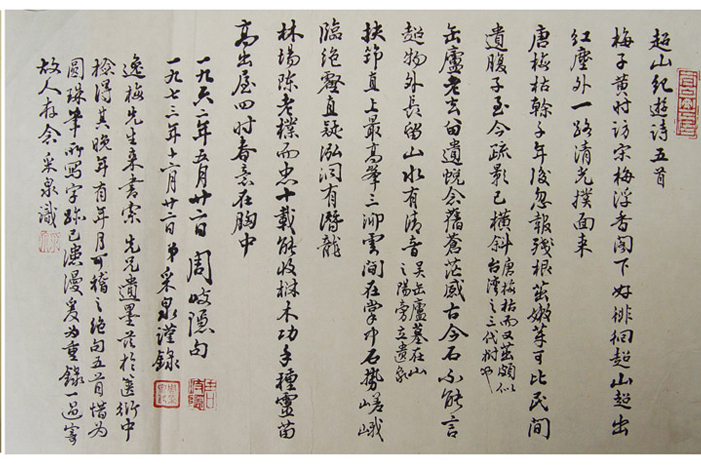 超山纪遊诗五首
梅子黄时访宋梅浮香阁下好徘徊超山超出
红塵外一路清光撲面来
唐梅枯榦千年後忽報残根茁嫩芽可比民间
遺腹子至今疏影已横斜唐梅枯而又茁頗似台湾之三代樹也
缶廬老去留遺蜕念舊蒼茫感古今石不能言
超物外長留山水有清音吴缶廬墓在山之陽旁立遺象
扶筇直上最高峯三泖雲间在掌中石勢嵯峨
臨绝壑直疑泓洞有潛龍
林場陈老樸而忠十載能收樹木功手種靈苗
高出屋四时春意在胸中
一九六二年五月廿二日周岐隐句
一九七三年十二月廿二日弟采泉谨錄
逸梅先生来書索先兄遺墨於箧衍中
檢得其晚年有年月可稽之绝句五首惜为
圆珠筆所写字跡已漶漫爰为重錄一過寄
故人存念采泉識